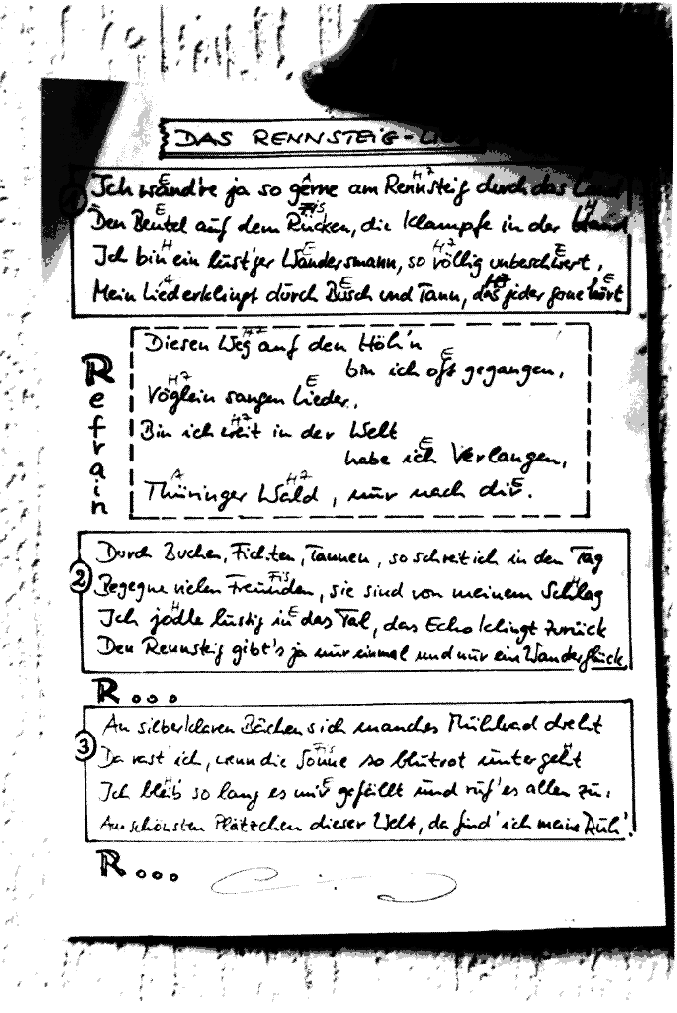 DAS RENNSTEIG-
1
E A H7
Ich wand're ja so gerne am Rennsteig durch das Land
E Fis H
Den Beutel auf dem Rücken, die Klampfe in der Hand
H E H7 E
Ich bin ein lust'ger Wandersmann, so völlig unbeschwert,
A E H7 E
Mein Lied erklingt durch Busch und Tann, das jeder gerne hört
Refrain
H7
Diesen Weg auf den Höh'n
E
bin ich oft gegangen,
H7 E
Vöglein sangen Lieder.
H7
Bin ich weit in der Welt
E
habe ich Verlangen,
A H7 E
Thüringer Wald, nur nach dir.
2
Durch Buchen, Fichten, Tannen, so schreit ich in den Tag
Fis H
Begegne vielen Freunden, sie sind von meinem Schlag
H E
Ich jodle lustig in das Tal, das Echo klingt zurück
Den Rennsteig gibt's ja nur einmal und nur ein Wanderglück
R...
3
An silberklaren Bächen sich manches Mühlrad dreht
Fis H
Da rast' ich, wenn die Sonne so blutrot untergeht
H E
Ich bleib' so lang es mir gefällt und ruf' es allen zu:
Am schönsten Plätzchen dieser Welt, da find' ich meine Ruh'.
R...